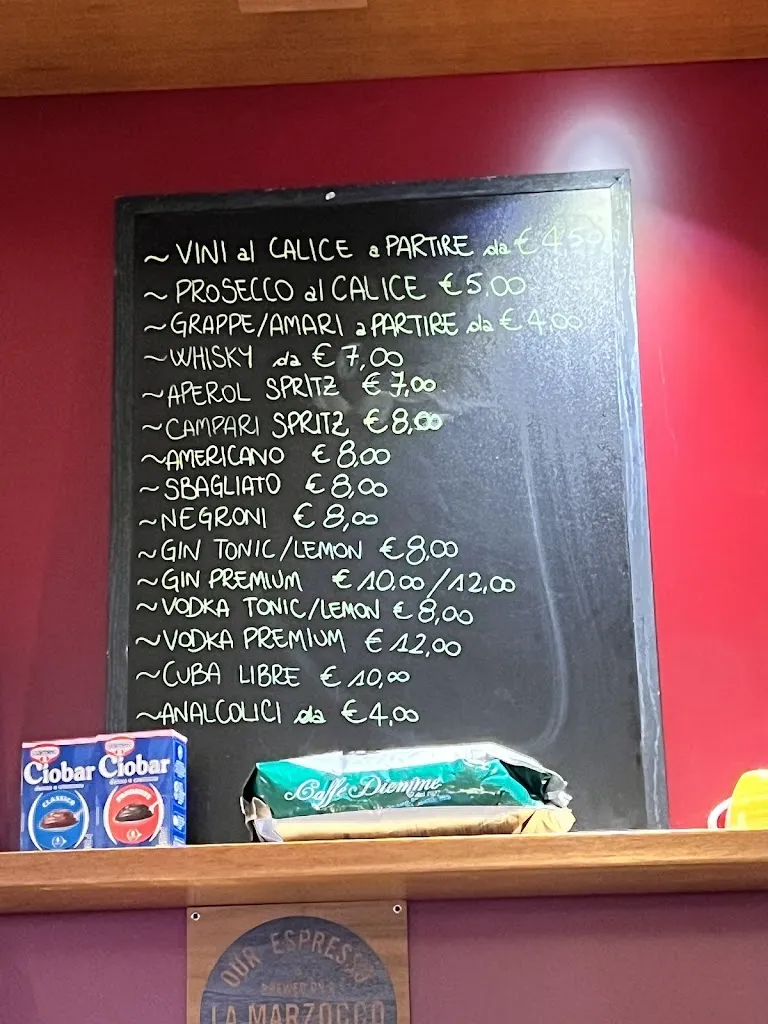 ~ VINI al CALICE a PARTIRE da € 4,50
~ PROSECCO al CALICE € 5,00
~ GRAPPE/AMARI a PARTIRE da € 4,00
~ WHISKY da € 7,00
~ APEROL SPRITZ € 7,00
~ CAMPARI SPRITZ € 8,00
~ AMERICANO € 8,00
~ SBAGLIATO € 8,00
~ NEGRONI € 8,00
~ GIN TONIC/LEMON € 8,00
~ GIN PREMIUM € 10,00/12,00
~ VODKA TONIC/LEMON € 8,00
~ VODKA PREMIUM € 12,00
~ CUBA LIBRE € 10,00
~ ANALCOLICI da € 4,00
Ciobar Ciobar
CLASSICO
Caffè Diemme
OUR ESPRESSO
BREWED ON
LA MARZOCCO